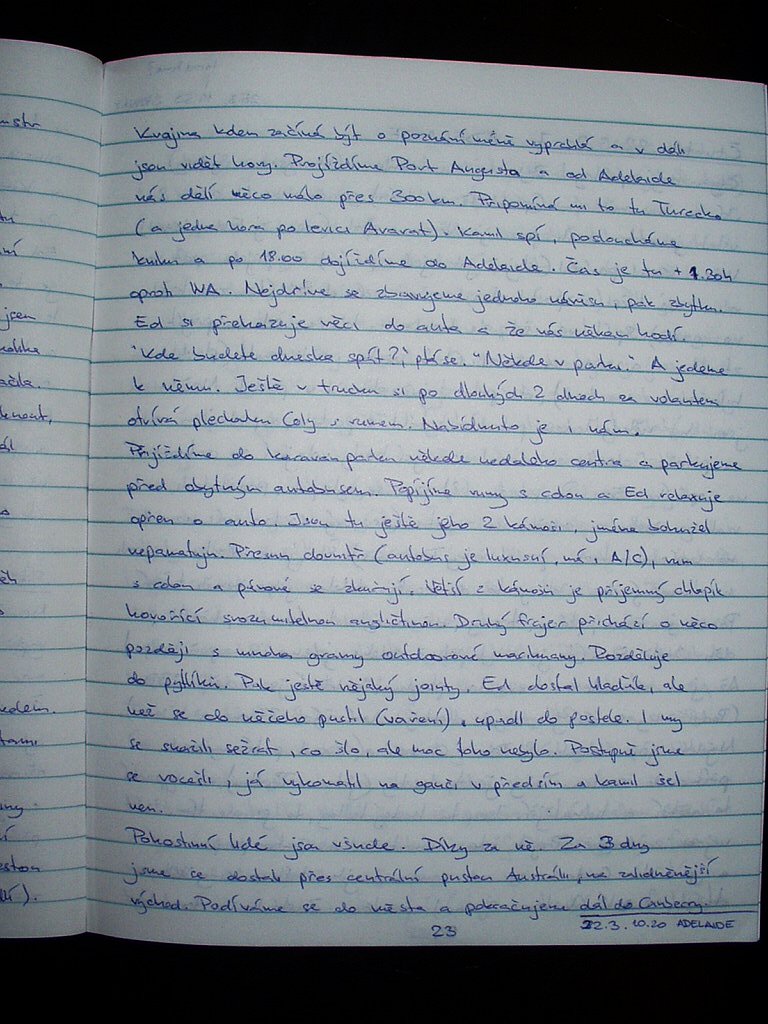 Krajina kolem začíná být o poznání méně vyprahlá a v dáli
jsou vidět hory. Projíždíme Port Augusta a od Adelaide
nás dělí něco málo přes 300 km. Připomíná mi to tu Turecko
(a jedna hora po levici Ararat). Kamil spí, posloucháme
knihu a po 18.00 dojíždíme do Adelaide. Čas je tu + 1.30h
oproti WA. Nejdříve se zbavujeme jednoho návěsu, pak zbytku.
Ed si překazuje věci do auta a že nás někam hodí.
"Kde budete dneska spát?", ptá se. "Někde v parku." A jedeme
k němu. Ještě v trucku si po dlouhých 2 dnech za volantem
otvírá plechovku Coly s rumem. Nabídnuto je i nám.
Přijíždíme do karavan parku někde nedaleko centra a parkujeme
před obytným autobusem. Popíjíme rumy s colou a Ed relaxuje
opřen o auto. Jsou tu ještě jeho 2 kámoši, jména bohužel
nepamatuju. Přesun dovnitř (autobus je luxusní, má i A/C), rum
s colou a pivově se zkuřují. Větší z kámošů je příjemný chlapík
hovořící srozumitelnou angličtinou. Druhý frajer přichází o něco
později s mnoha gramy outdoorové marihuany. Rozděluje
do pytlíků. Pak ještě nějaký jointy. Ed dostal hlaďák, ale
než se do něčeho pustil (vaření), upadl do postele. I my
se snažili sežrat, co šlo, ale moc toho nebylo. Postupně jsme
se vocešli, já vykomatil na gauči v předsím a kamil šel
ven.
Pohostinní lidé jsou všude. Díky za ně. Za 3 dny
jsme se dostali přes centrální pustou Austrálii, na zalidněnější
východ. Podíváme se do města a pokračujeme dál do Canberry.
22.3. 10.20 ADELAIDE
23